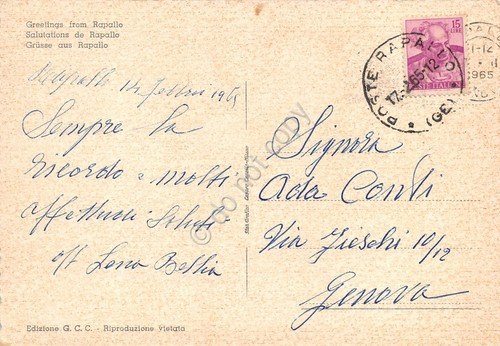 Greetings from Rapallo
Salutations de Rapallo
Grüsse aus Rapallo
Rapallo 14 Febbraio 1965
Sempre la
ricordo e molti
affettuosi saluti
Lena
Edizione G. C. C. - Riproduzione vietata
do not copy
15
LIRE
POSTE ITALIANE
POSTE RAPALLO
(GE)
1965
Signora
Ada Conti
Via Fieschi 10/12
Genova